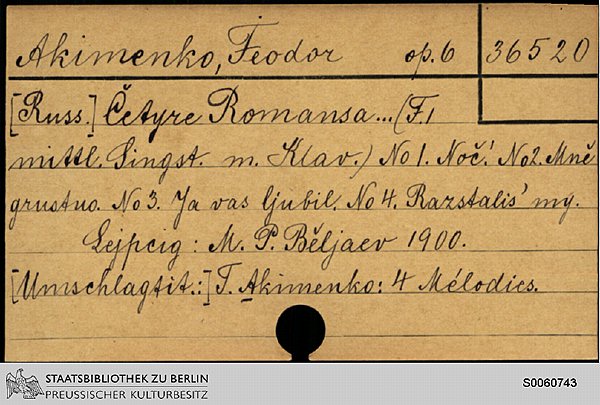 Akimenko, Feodor op. 6 36520
[Russ.] Četyre Romansa ... (F. 1
mittl. Singst. m. Klav.) No 1. Noč'. No 2. Mně
grustno. No 3. Ja vas ljubil. No 4. Razstalis' my.
Lejpcig : M. P. Běljaev 1900.
[Umschlagtit.:] T. Akimenko: 4 Mélodies.
STAATSBIBLIOTHEK ZU BERLIN
PREUSSISCHER KULTURBESITZ
S0060743